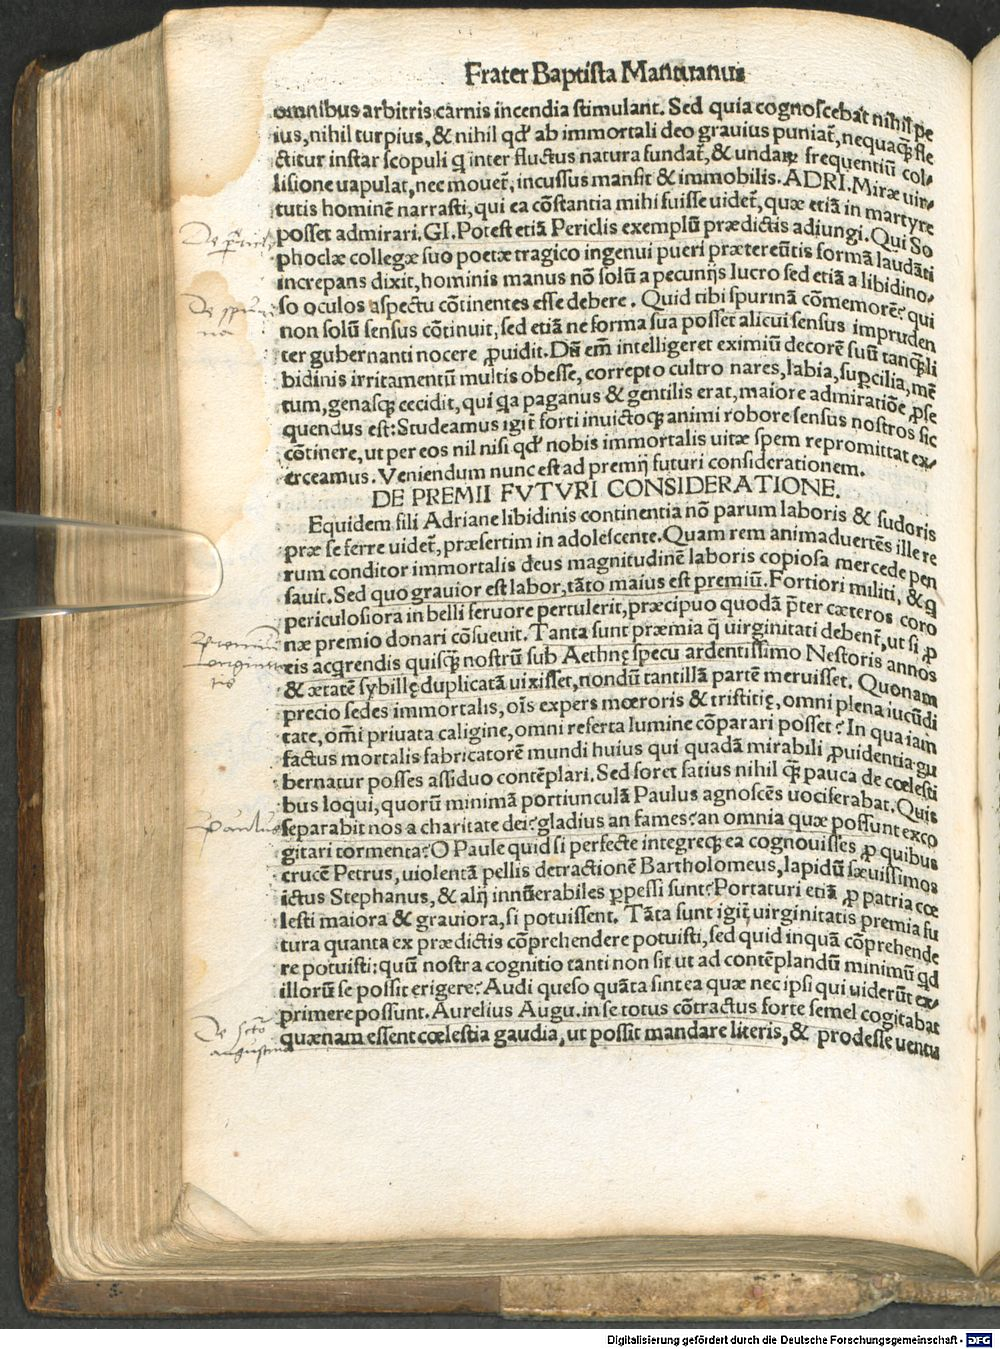 Frater Baptista Mantuanus
omnibus arbitris carnis incendia stimulant. Sed quia cognoscebat nihil pe
ius, nihil turpius, & nihil qđ ab immortali deo grauius puniat̃, nequaq̃ꝫ fle
ctitur instar scopuli q inter fluctus natura fundat̃, & undaꝝ frequentiũ col-
lisione uapulat, nec mouet̃, incussus mansit & immobilis. ADRI. Miræ uir-
tutis hominẽ narrasti, qui ea cõstantia mihi fuisse uidet̃, quæ etiã in martyre
posset admirari. GI. Potest etiã Periclis exemplũ prædictis adiungi. Qui So
De pericle
phoclæ collegæ suo poetæ tragico ingenui pueri prætereũtis formã laudãti
increpans dixit, hominis manus nõ solũ a pecunijs lucro sed etiã a libidino-
so oculos aspectu cõtinentes esse debere. Quid tibi spurinã cõmemorẽ? qui
De spuri
na
non solũ sensus cõtinuit, sed etiã ne forma sua posset alicui sensus impruden
ter gubernanti nocere ꝓuidit. Dũ em̃ intelligeret eximiũ decorẽ suũ tanq̃ꝫ li
bidinis irritamentũ multis obesse, correpto cultro nares, labia, suꝑcilia, mẽ
tum, genasqꝫ cecidit, qui qa paganus & gentilis erat, maiore admiratiõe ꝓse
quendus est: Studeamus igit̃ forti inuictoqꝫ animi robore sensus nostros sic
cõtinere, ut per eos nil nisi qđ nobis immortalis uitæ spem repromittat ex-
erceamus. Veniendum nunc est ad premij futuri considerationem.
DE PREMII FVTVRI CONSIDERATIONE.
Equidem fili Adriane libidinis continentia nõ parum laboris & sudoris
præ se ferre uidet̃, præsertim in adolescente. Quam rem animaduertẽs ille re
rum conditor immortalis deus magnitudinẽ laboris copiosa mercede pen
sauit. Sed quo grauior est labor, tãto maius est premiũ. Fortiori militi, & q
periculosiora in belli feruore pertulerit, præcipuo quodã p̃ter cæteros coro
næ premio donari cõsueuit. Tanta sunt præmia q̃ uirginitati debent̃, ut si ꝓ
eis acqrendis quisq̃ꝫ nostrũ sub Aethnę specu ardentissimo Nestoris annos
& ætatẽ sybillę duplicatã uixisset, nondũ tantillã partẽ meruisset. Quonam
precio sedes immortalis, oĩs expers mœroris & tristitię, omni plena iucũdi
tate, om̃i priuata caligine, omni referta lumine cõparari posset? In qua iam
factus mortalis fabricatorẽ mundi huius qui quadã mirabili ꝓuidentia gu
bernatur posses assiduo contẽplari. Sed foret satius nihil q̃ꝫ pauca de cœlesti
bus loqui, quorũ minimã portiunculã Paulus agnoscẽs uociferabat. Quis
Paulus
separabit nos a charitate dei? gladius an fames? an omnia quæ possunt exco
gitari tormenta? O Paule quid si perfecte integreqꝫ ea cognouisses ꝓ quibus
crucẽ Petrus, uiolentã pellis detractionẽ Bartholomeus, lapidũ sæuissimos
ictus Stephanus, & alij innũerabiles ꝑpessi sunt? Portaturi etiã ꝓ patria cœ
lesti maiora & grauiora, si potuissent. Tãta sunt igit̃ uirginitatis premia fu
tura quanta ex prædictis cõprehendere potuisti, sed quid inquã cõprehende
re potuisti: quũ nostra cognitio tanti non sit ut ad contẽplandũ minimũ qđ
illorũ se possit erigere? Audi queso quãta sint ea quæ nec ipsi qui uiderũt ex-
primere possunt. Aurelius Augu. in se totus cõtractus forte semel cogitabat
De scto
augustino
quænam essent cœlestia gaudia, ut possit mandare literis, & prodesse ventu
Digitalisierung gefördert durch die Deutsche Forschungsgemeinschaft - DFG